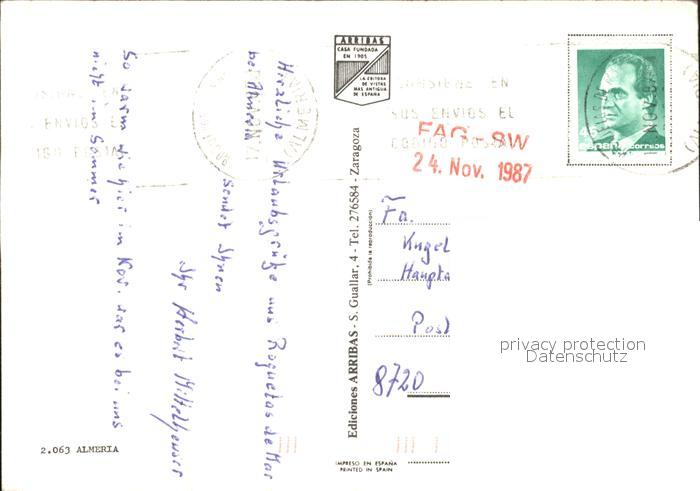 ARRIBAS
CASA FUNDADA
EN 1905
LA EDITORA
DE VISTAS
MAS ANTIGUA
DE ESPAÑA
CONSIGNE EN
SUS ENVIOS EL
CODIGO POSTAL
FAG - SW
24. Nov. 1987
correos
Herzliche Urlaubsgrüße aus Roquetas de Mar
bei Almeria
sendet Ihnen
Ihr Herbert
So warm wie hier im Nov. war es bei uns
nicht im Sommer
Ediciones ARRIBAS - S. Guallar, 4 - Tel. 276584 - Zaragoza
(Prohibida la reproducción)
Fa.
Kugel
Haupta
Post
8720
privacy protection
Datenschutz
2.063 ALMERIA
IMPRESO EN ESPAÑA
PRINTED IN SPAIN